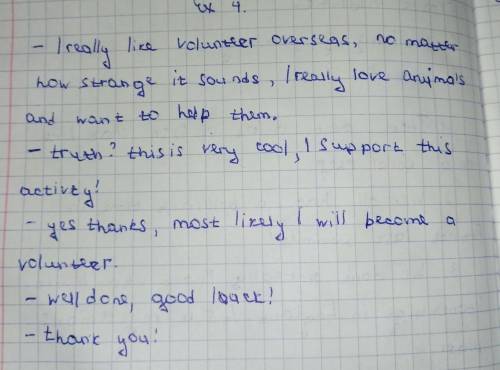 Ex 4.
- I really like volunteer overseas, no matter
how strange it sounds, I really love animals
and want to help them.
- truth? this is very cool, I support this
activty!
- yes thanks, most likely I will become a
volunteer.
- well done, good luck!
- thank you!